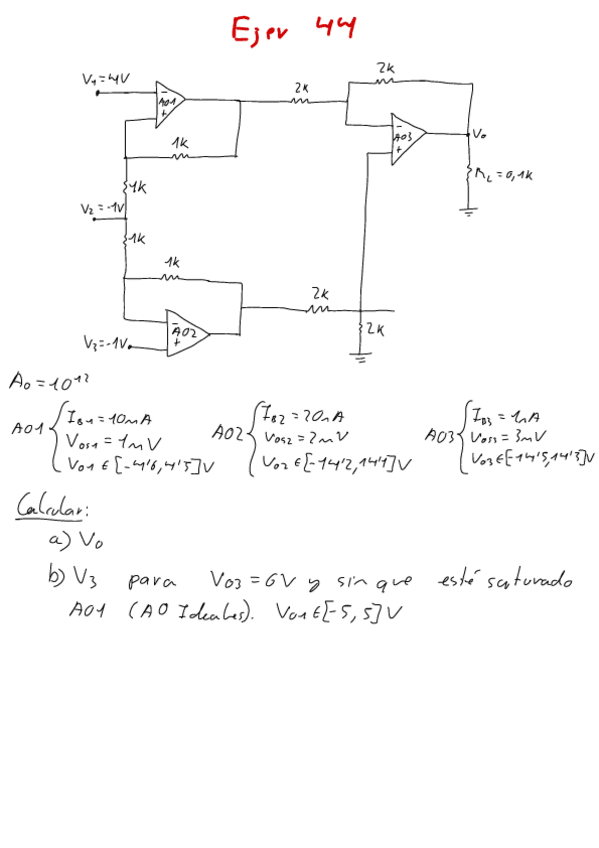 Ejer 44
2k
V1=4V
2k
-
AO1
+
-
AO3
+
Vo
1k
RL=0,1k
1k
V2=-1V
1k
1k
2k
-
AO2
+
2k
V3=-1V
Ao=10^12
AO1 { IB1=10nA
VOS1=1mV
VO1 ∈ [-4'6, 4'5]V
AO2 { IB2=20nA
VOS2=2mV
VO2 ∈ [-14'2, 14'1]V
AO3 { IB3=1nA
VOS3=3mV
VO3 ∈ [-14'5, 14'3]V
Calcular:
a) Vo
b) V3 para VO3=6V y sin que esté saturado
AO1 (AO Ideales). VO1 ∈ [-5, 5]V